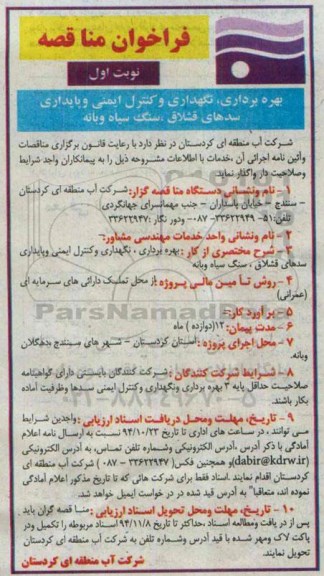 فراخوان مناقصه
نوبت اول
بهره برداری، نگهداری وکنترل ایمنی وپایداری
سدهای قشلاق ،سنگ سیاه وبانه
شرکت آب منطقه ای کردستان در نظر دارد با رعایت قانون برگزاری مناقصات
وآئین نامه اجرایی آن ،خدمات با اطلاعات مشروحه ذیل را به پیمانکاران واجد شرایط
وصلاحیت دار واگذار نماید.
۱ - نام ونشانی دستگاه مناقصه گزار: شرکت آب منطقه ای کردستان
- سنندج - خیابان پاسداران - جنب مهمانسرای جهانگردی
تلفن: ۵۱- ۳۳۶۲۲۹۴۹ -۰۸۷ ودور نگار :۳۳۶۲۲۹۴۷
۲ - نام ونشانی واحد خدمات مهندسی مشاور:-
۳ - شرح مختصری از کار : بهره برداری ، نگهداری وکنترل ایمنی وپایداری
سدهای قشلاق ، سنگ سیاه وبانه
۴ - روش تأ مین مالی پروژه : از محل تملیک دارائی های سرمایه ای
(عمرانی)
۵ - بر آورد کار:-
۶ - مدت پیمان: ۱۲(دوازده ) ماه
۷ - محل اجرای پروژه : استان کردستان - شهر های سنندج ،دهگلان
وبانه.
۸ - شرایط شرکت کنندگان : شرکت کنندگان بایستی دارای گواهینامه
صلاحیت حداقل پایه ۳ بهره برداری ونگهداری وکنترل ایمنی سدها وظرفیت آماده
بکار باشند.
۹ - تاریخ، مهلت ومحل دریافت اسناد ارزیابی : واجدین شرایط
می توانند ، در ساعت های اداری تا تاریخ ۹۴/۱۰/۲۳ نسبت به ارسال نامه اعلام
آمادگی با ذکر آدرس ،آدرس الکترونیکی وشماره تلفن تماس، به آدرس الکترونیکی
(dabir@kdrw.ir)و همچنین فکس( ۳۳۶۲۲۹۴۷ - ۰۸۷ ) شرکت آب منطقه ای
کردستان اقدام نمایند .اسناد فقط برای شرکت هائی که تا تاریخ مذکور اعلام آمادگی
نموده اند، متعاقباً به آدرس قید شده در در خواست ایمیل خواهد شد.
۱۰ - تاریخ، مهلت ومحل تحویل اسناد ارزیابی : مناقصه گران باید
پس از در یافت ومطالعه اسناد ،حداکثر تا تاریخ ۹۴/۱۱/۸ اسناد مربوطه را تکمیل ودر
پاکت لاک ومهر شده با قید آدرس وشماره تلفن به شرکت آب منطقه ای کردستان
تحویل نمایند.
شرکت آب منطقه ای کردستان